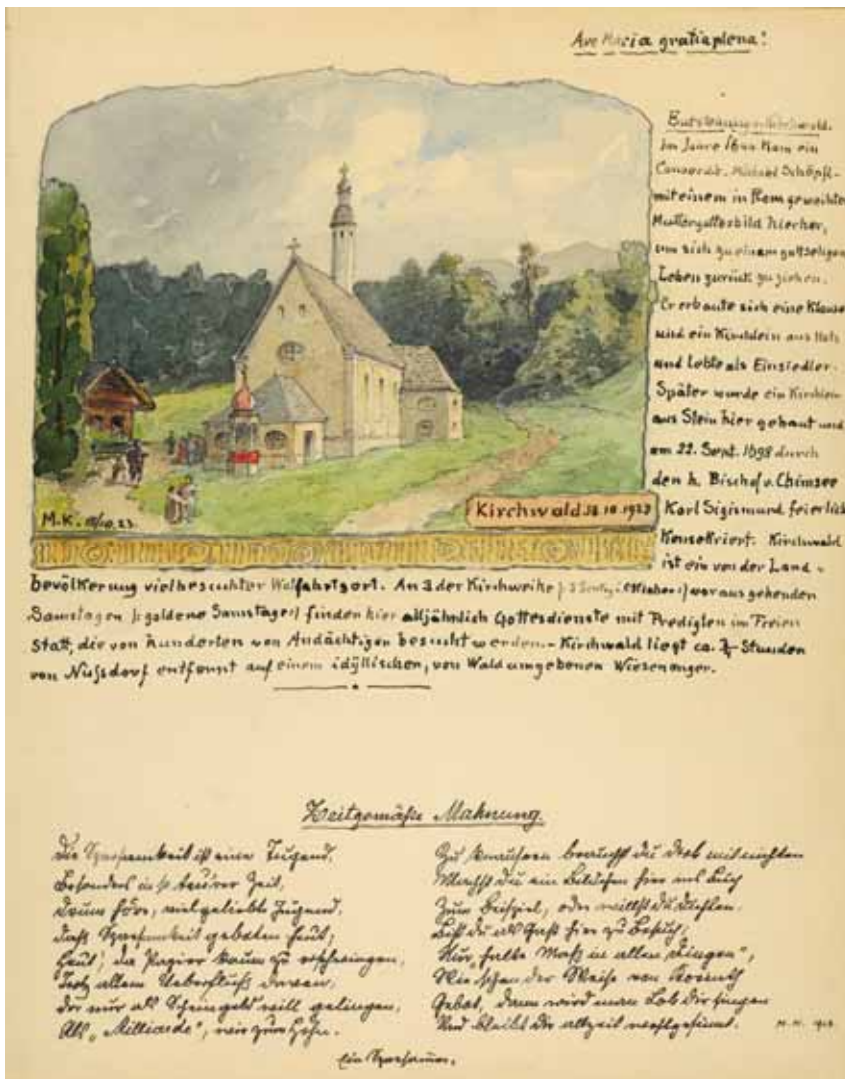 Ave Maria gratia plena!
Entstehung v. Kirchwald.
Im Jahre 1644 kam ein
Michael Schöpfl -
mit einem in Rom geweihten
Muttergottesbild hierher,
um sich zu einem gottseligen
Leben zurück zu ziehen.
Er erbaute sich eine Klause
und ein Kirchlein aus Holz
und lebte als Einsiedler.
Später wurde ein Kirchlein
aus Stein hier gebaut und
am 22. Sept. 1698 durch
den h. Bischof v. Chimsee
Karl Sigismund feierlich
Konsekriert. Kirchwald
ist ein von der Land-
M.K. 18/10.23.
Kirchwald 18.10.1923
bevölkerung vielbesuchter Walfahrtsort. An 3 der Kirchweihe vorausgehenden
Samstagen (: goldene Samstage :) finden hier alljährlich Gottesdienste mit Predigten im Freien
Statt, die von hunderten von Andächtigen besucht werden. - Kirchwald liegt ca. Stunden
von Nußdorf entfernt auf einem idÿllischen, von Wald umgebenen Wiesenanger.
Zeitgemäße Mahnung.
Die Sparsamkeit ist eine Tugend,
Besonders in so teurer Zeit,
Drum höre, vielgeliebte Jugend,
Daß Sparsamkeit geboten heut;
Heut', da Papier kaum zu erschwingen,
Trotz allem Ueberfluß davon,
Der nur als Scheingeld will gelingen,
Als „Milliarde", wie zum Hohn.
Zu knausern brauchst du drob mit nichten
Machst du ein Bildchen hier ins Buch
Zum Beispiel, oder willst du dichten,
Bist du als Gast hier zu Besuch;
Nur „halte Maß in allen Dingen",
Wie schon der Weise von Korinth
Gebot, dann wird man Lob dir singen
Und bleibt dir allzeit wohlgesinnt.
Ein Sparsamer.